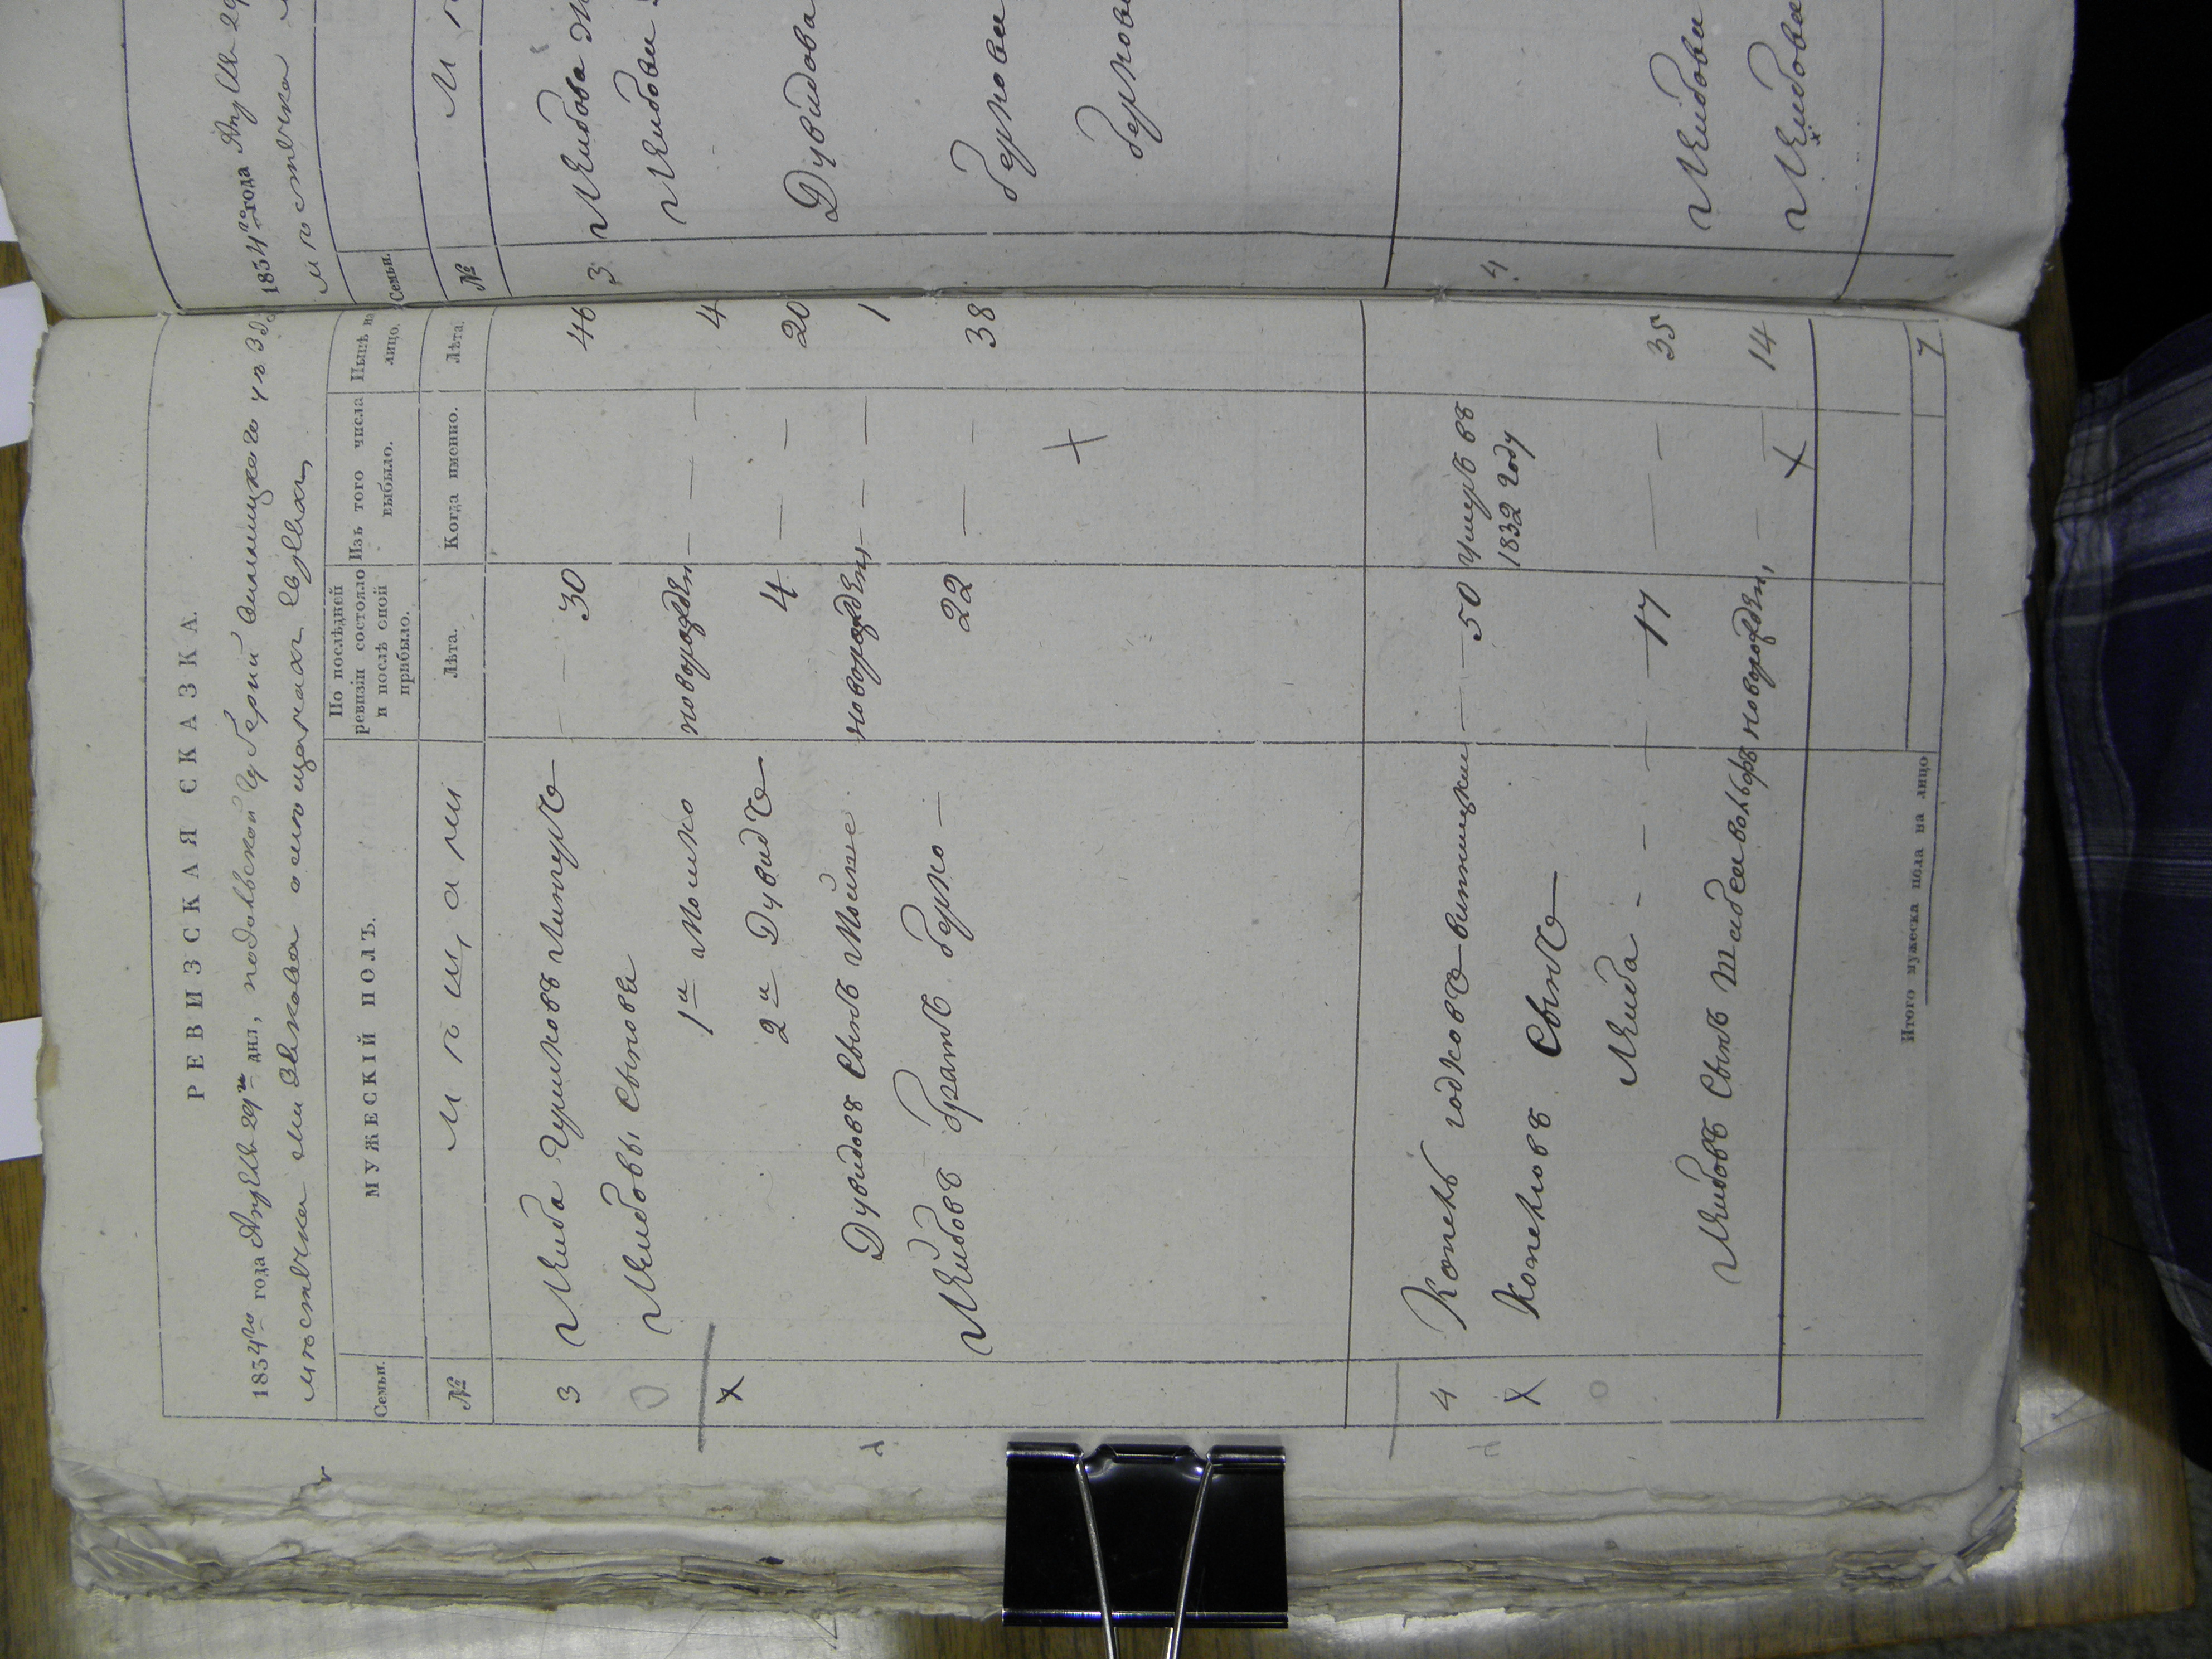 РЕВИЗСКАЯ СКАЗКА.
1834го года Апреля 29го дня, подольской Губернии винницкого
местечка о мещанах Евреях
Семьи. МУЖЕСКІЙ ПОЛЪ. По послѣдней ревизіи состояло и послѣ оной прибыло. Изъ того числа выбыло. Нынѣ на лицо.
№ Мѣщане Лѣта. Когда именно. Лѣта.
3 Лейба Лингеръ — — 30 46
Лейбовы Сыновья
1й Мошко новорожден — — — 4
2й Дувидъ 4 — — 20
Дувидовъ Сынъ Мойше новорожден — — — 1
Лейбовъ братъ Берко — 22 — — 38
4 Копель винницкій — — 50 Умеръ въ 1832 году
Копелювъ Сынъ
Лейба - - — — 17 — — 35
Лейбовъ Сынъ новорожден, — — 14
Итого мужеска пола на лицо 7
1834го года Апреля 29
местечка
Семьи.
№ М
3 Лейбова
Лейбови
Дувидова
Беркова
Беркова
4
Лейбова
Лейбова